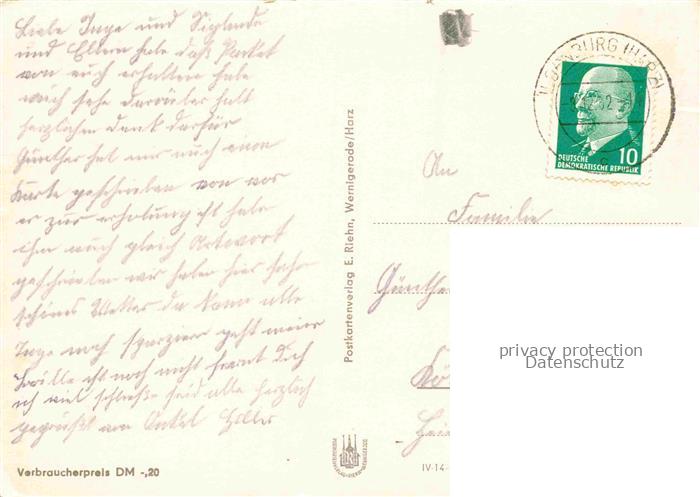 Liebe Inge und Siglinde
und Eltern habe daß Packet
von euch erhalten habe
mich sehr darüber
herzlichen dank dafür
Günther hat mir auch einen
Karte geschrieben von wo
er zur erholung ist habe
ihm auch gleich Antwort
geschrieben wir haben hier sehr
schönes Wetter da kann alle
Tage noch spazieren geht
ist noch nicht
ich viel schließe seid alle herzlich
gegrüßt von Onkel
Verbraucherpreis DM -,20
Postkartenverlag E. Riehn, Wernigerode/Harz
ILSENBURG (HARZ)
DEUTSCHE
DEMOKRATISCHE REPUBLIK
10
An
Familie
Günther
Kö
privacy protection
Datenschutz
IV-14-